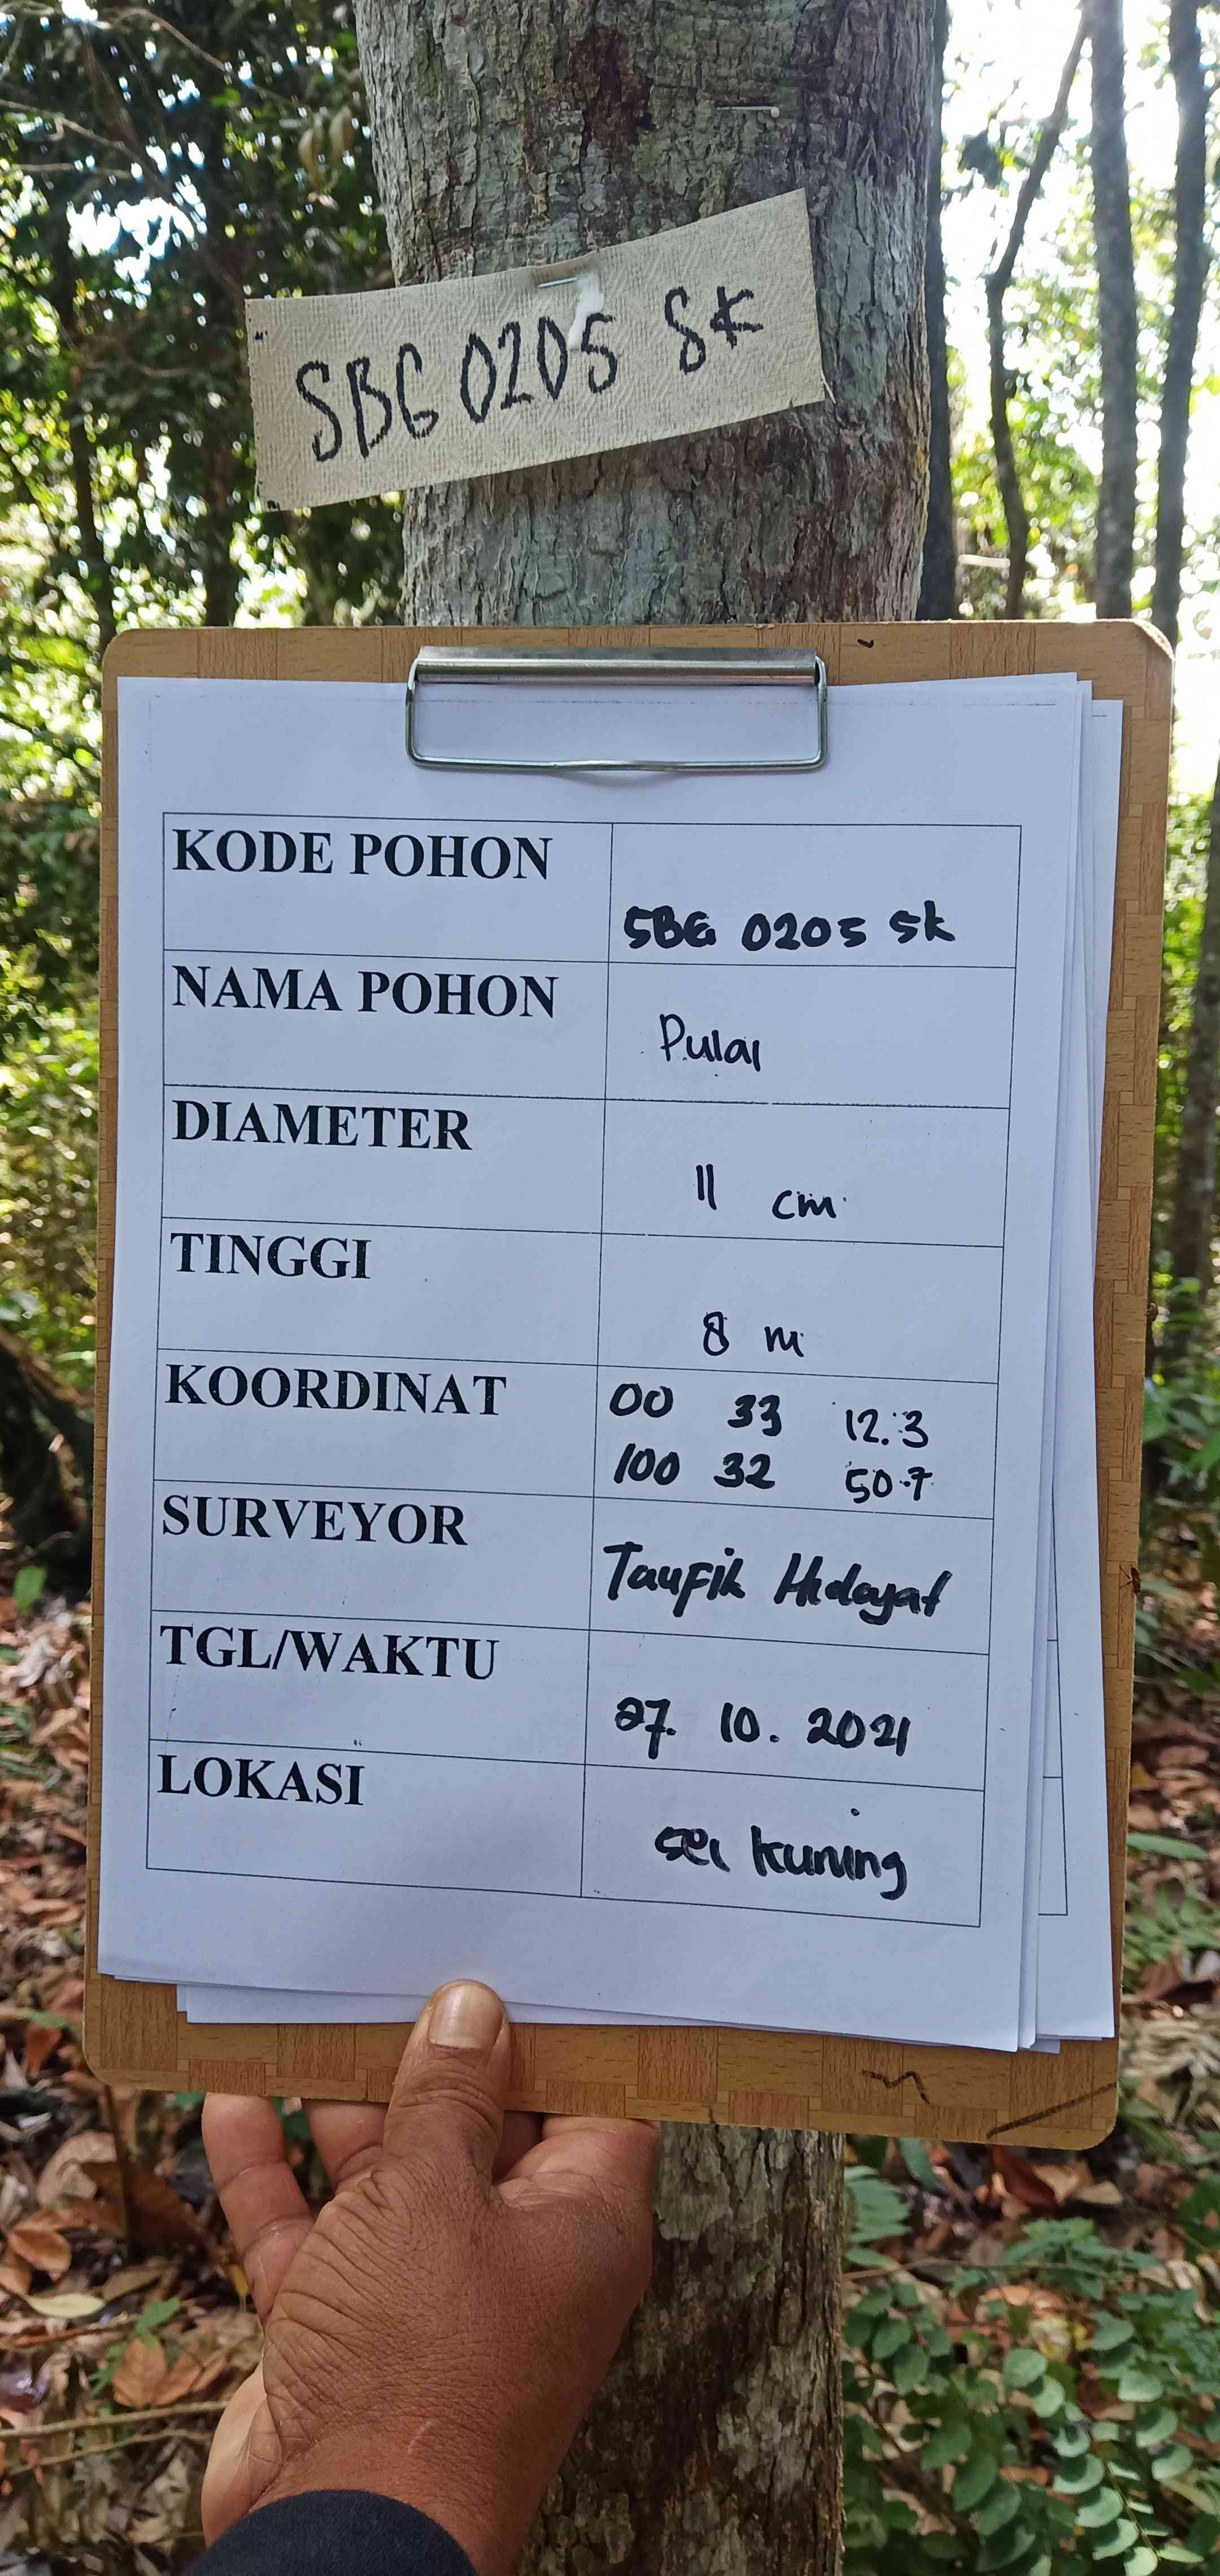 SBG 0205 SK
KODE POHON
SBG 0205 SK
NAMA POHON
Pulai
DIAMETER
11 cm
TINGGI
8 m
KOORDINAT
00 33 12.3
100 32 50.7
SURVEYOR
Taufik Hidayat
TGL/WAKTU
27. 10. 2021
LOKASI
sei kuning